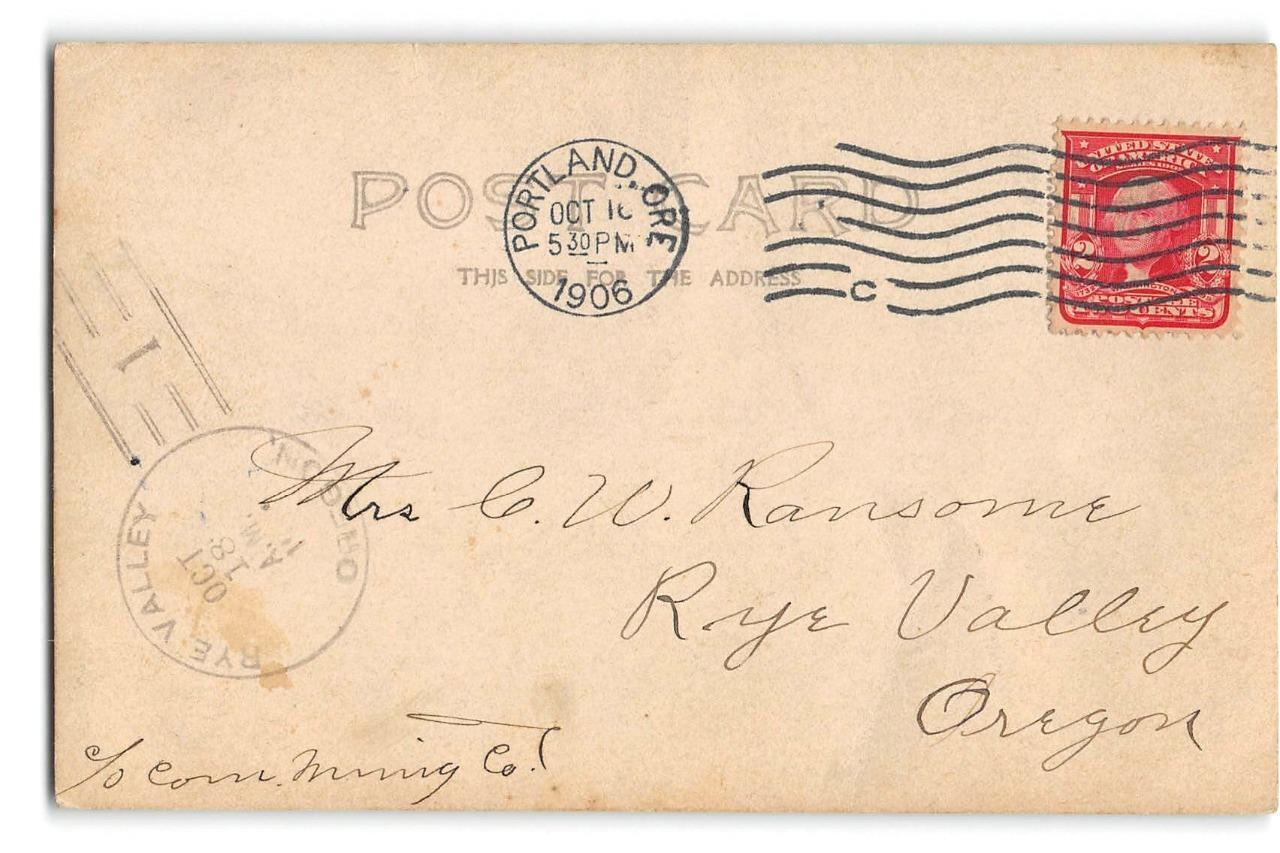 POST CARD
THIS SIDE FOR THE ADDRESS
PORTLAND, ORE
OCT 16
5 30 PM
1906
C
UNITED STATES
OF AMERICA
2 2
POSTAGE
CENTS
1
RYE VALLEY
OREGON
OCT
18
A.M.
Mrs C. W. Ransome
Rye Valley
Oregon
c/o Com. Mining Co.